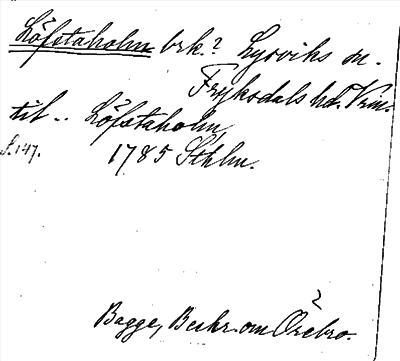 Löfstaholm brk.? Lysviks sn.
Fryksdals hd. Vrm.
til .. Löfstaholm,
s. 147. 1785 Sthlm.
2
Bagge, Beskr. om Örebro.